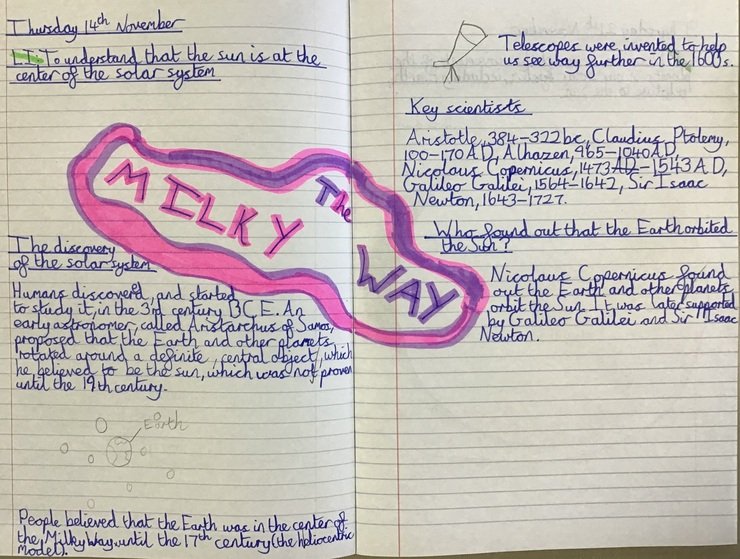 Thursday 14th November
L.I. To understand that the sun is at the
center of the solar system
The
MILKY
WAY
The discovery
of the solar system
Humans discoverd, and started
to study it, in the 3rd century BCE. An
early astronomer, called Aristarchus of Samos,
proposed that the Earth and other planets
rotated around a definite, central object, which
he believed to be the sun, which was not proven
until the 19th century.
Earth
People believed that the Earth was in the center of
the Milky Way until the 17th century (the heliocentric
model).
Telescopes were invented to help
us see way further in the 1600s.
Key scientists
Aristotle, 384-322bc, Claudius Ptolemy,
100-170AD, Alhazen, 965-1040AD,
Nicolaus Copernicus, 1473AD-1543AD,
Galileo Galilei, 1564-1642, Sir Isaac
Newton, 1643-1727.
Who found out that the Earth orbited
the Sun?
Nicolaus Copernicus found
out the Earth and other planets
orbit the Sun. It was later supported
by Galileo Galilei and Sir Isaac
Newton.